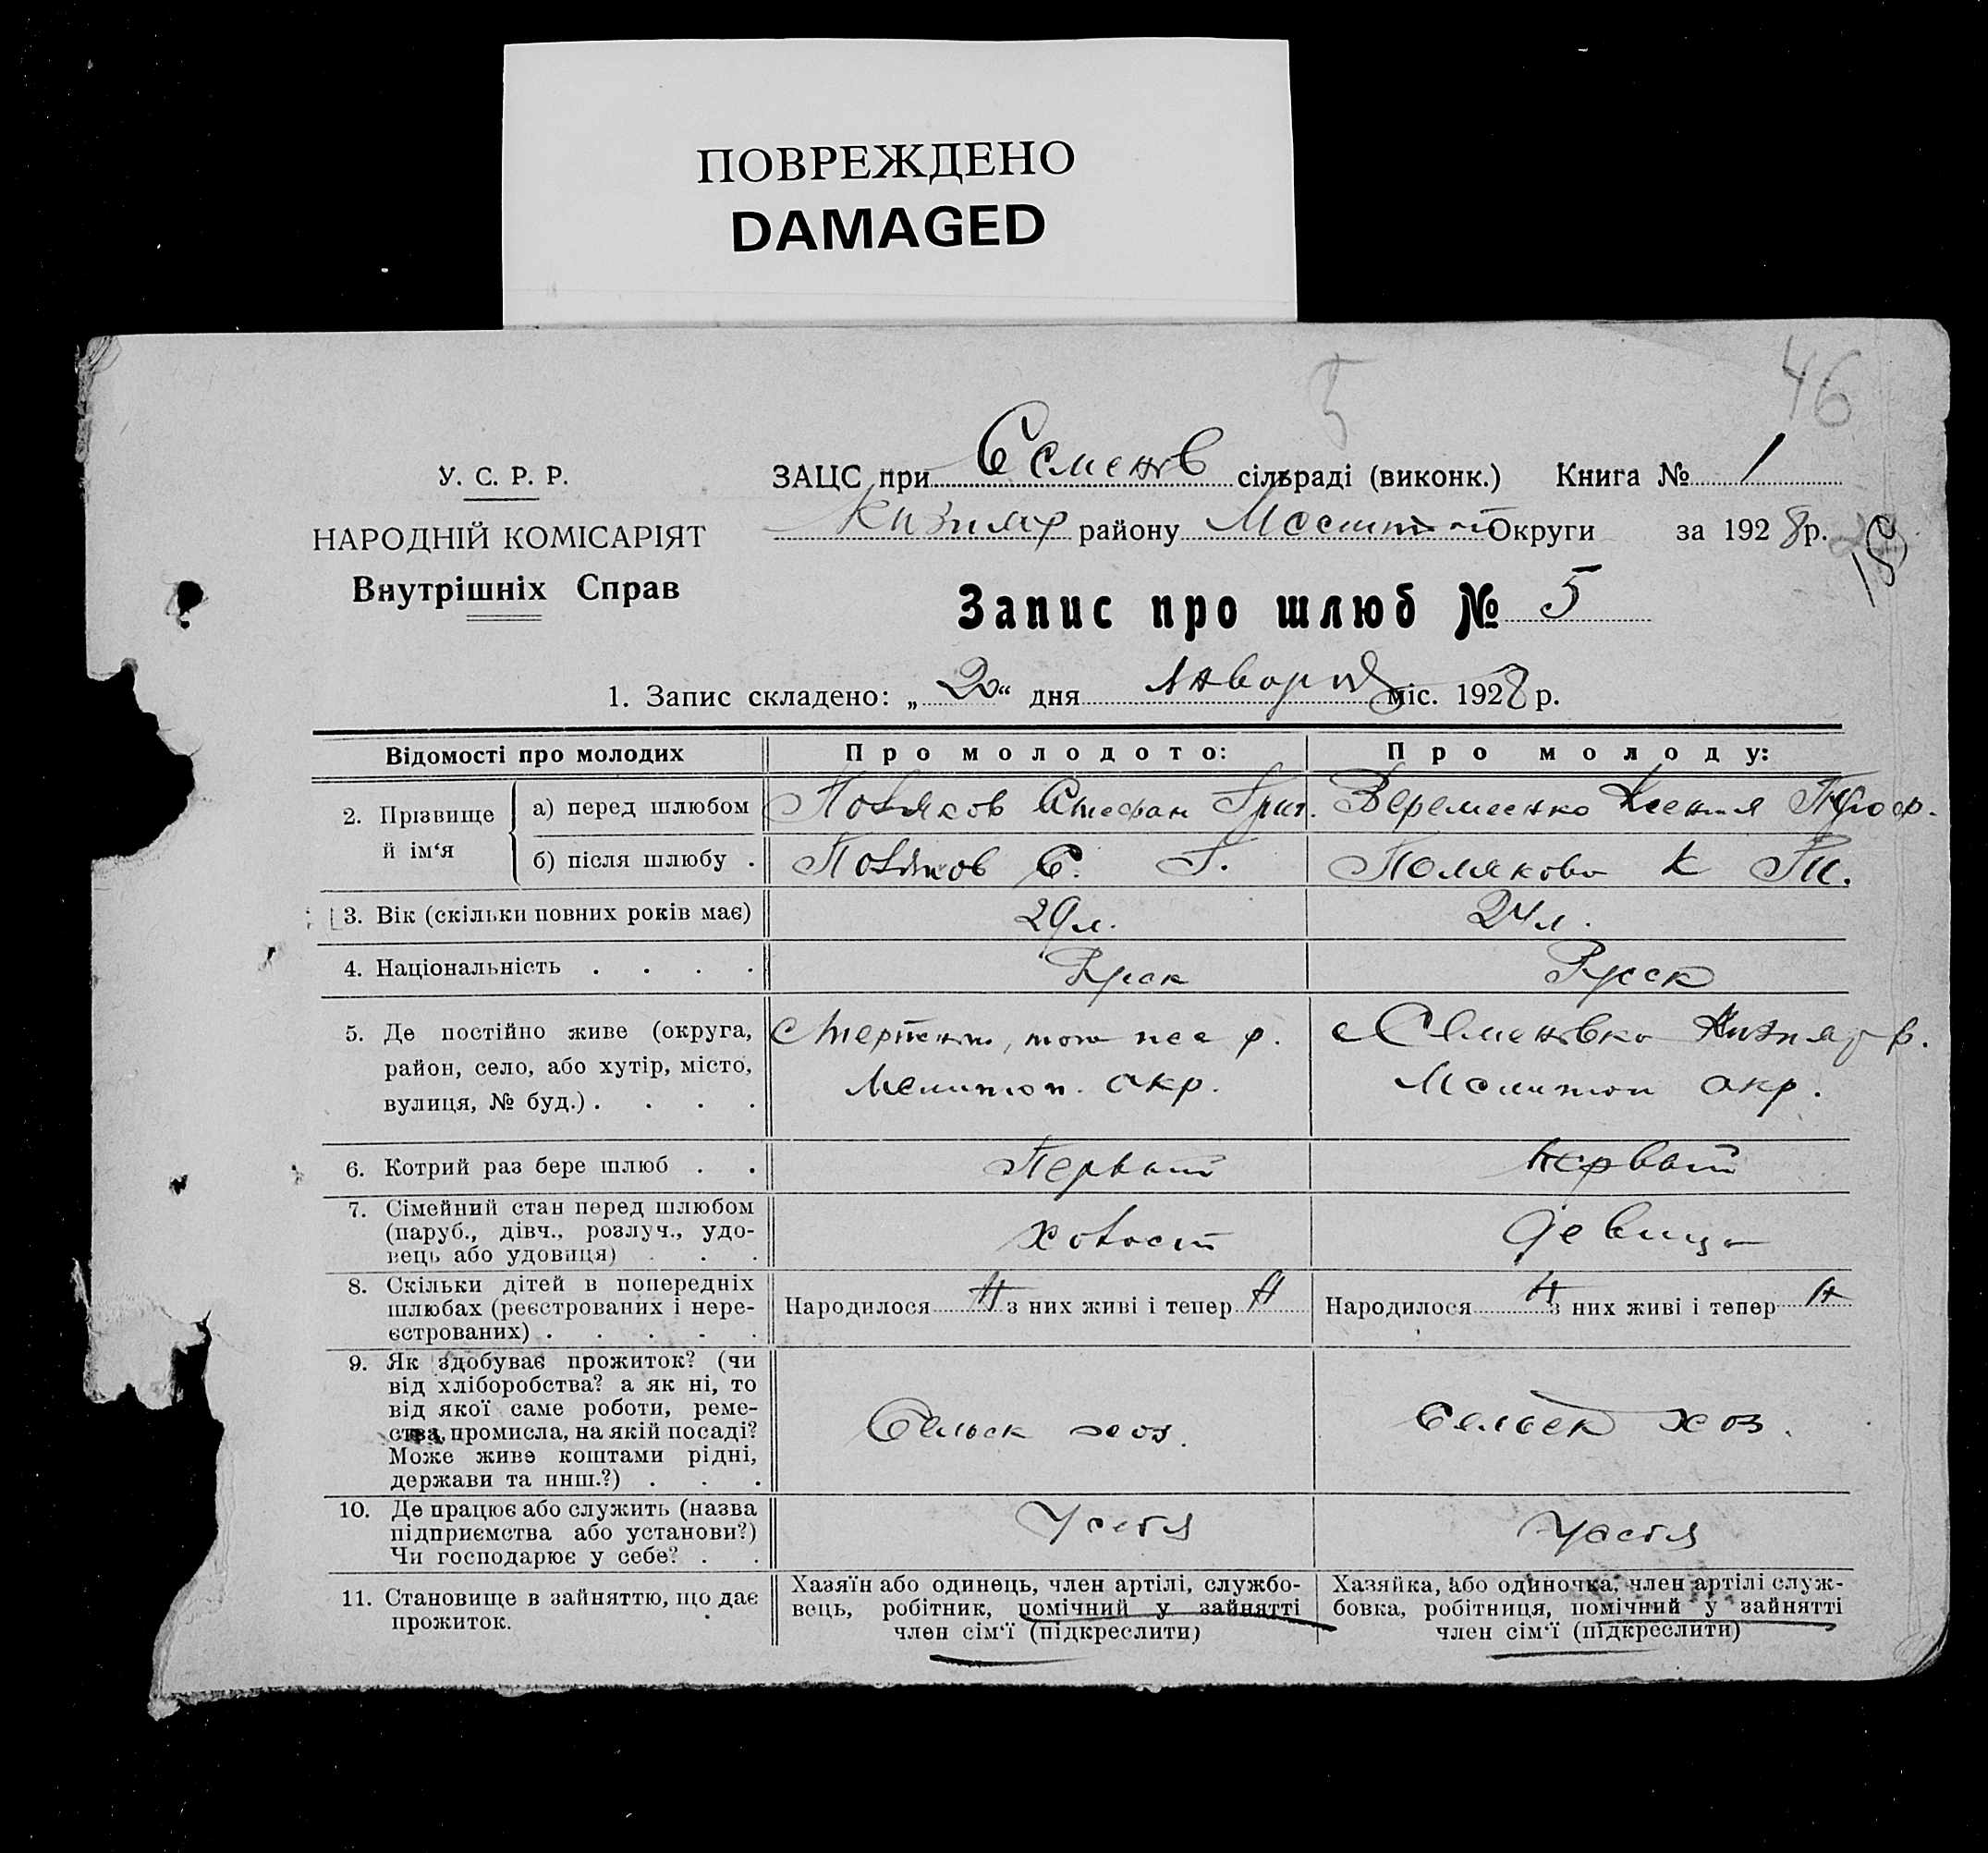 ПОВРЕЖДЕНО
DAMAGED
46
5
У. С. Р. Р.
НАРОДНІЙ КОМІСАРІЯТ
Внутрішніх Справ
ЗАЦС при Семенов сільраді (виконк.) Книга № 1
Кизияр району Мелитоп Округи за 1928 р.
159
Запис про шлюб № 5
1. Запис складено: „20“ дня Января міс. 1928 р.
Відомості про молодих Про молодого: Про молоду:
2. Прізвище й ім‘я
а) перед шлюбом Поляков Стефан Григ. Веремеенко Ксения Троф.
б) після шлюбу . Поляков С. Г. Полякова К Т.
3. Вік (скільки повних років має) 29 л. 24 л.
4. Національність . . . . Русск Русск
5. Де постійно живе (округа, район, село, або хутір, місто, вулиця, № буд.) . . . .
с Терпение, того же р.
Мелитоп. окр.
с Семеновка Кизияр р.
Мелитоп окр.
6. Котрий раз бере шлюб . . Первый Первый
7. Сімейний стан перед шлюбом
(паруб., дівч., розлуч., удо-
вець або удовиця) . . .
Холост Девица
8. Скільки дітей в попередніх
шлюбах (реєстрованих і нере-
єстрованих) . . . . .
Народилося Н з них живі і тепер Н Народилося Н з них живі і тепер Н
9. Як здобуває прожиток? (чи
від хліборобства? а як ні, то
від якої саме роботи, реме-
ства, промисла, на якій посаді?
Може живе коштами рідні,
держави та инш.?) . . .
Сельск хоз. Сельск хоз.
10. Де працює або служить (назва
підприємства або установи?)
Чи господарює у себе? . .
У себя У себя
11. Становище в зайняттю, що дає
прожиток.
Хазяїн або одинець, член артілі, службо-
вець, робітник, помічний у зайнятті
член сім‘ї (підкреслити)
Хазяйка, або одиночка, член артілі служ-
бовка, робітниця, помічний у зайнятті
член сім‘ї (підкреслити)